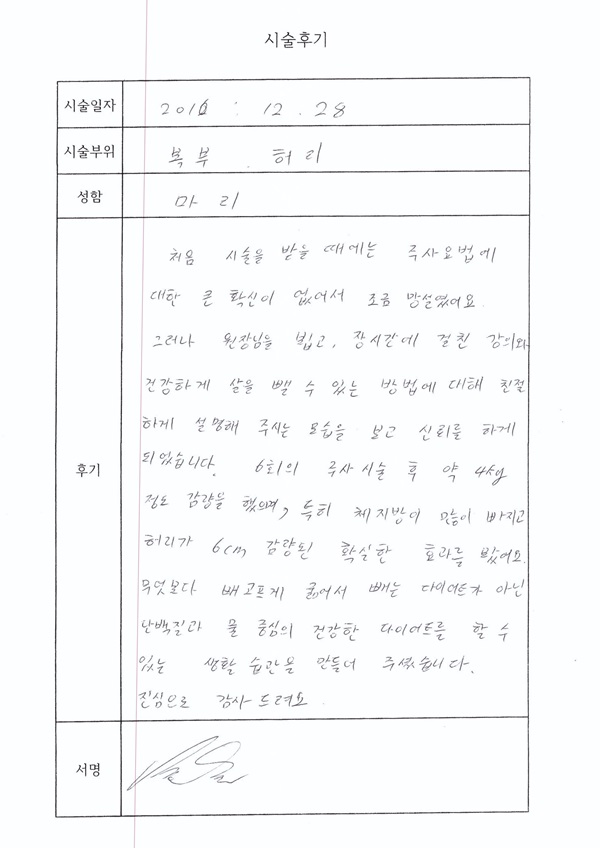 시술후기
시술일자 2016 . 12 . 28
시술부위 복부 . 허리
성함 마리
후기
처음 시술을 받을 때에는 주사요법에
대한 큰 확신이 없어서 조금 망설였어요.
그러나 원장님을 뵙고, 장시간에 걸친 강의와
건강하게 살을 뺄 수 있는 방법에 대해 친절
하게 설명해 주시는 모습을 보고 신뢰를 하게
되었습니다. 6회의 주사 시술 후 약 4kg
정도 감량을 했으며, 특히 체지방이 많이 빠지고
허리가 6cm 감량된 확실한 효과를 봤어요.
무엇보다 배고프게 굶어서 빼는 다이어트가 아닌
단백질과 물 중심의 건강한 다이어트를 할 수
있는 생활 습관을 만들어 주셨습니다.
진심으로 감사드려요.
서명